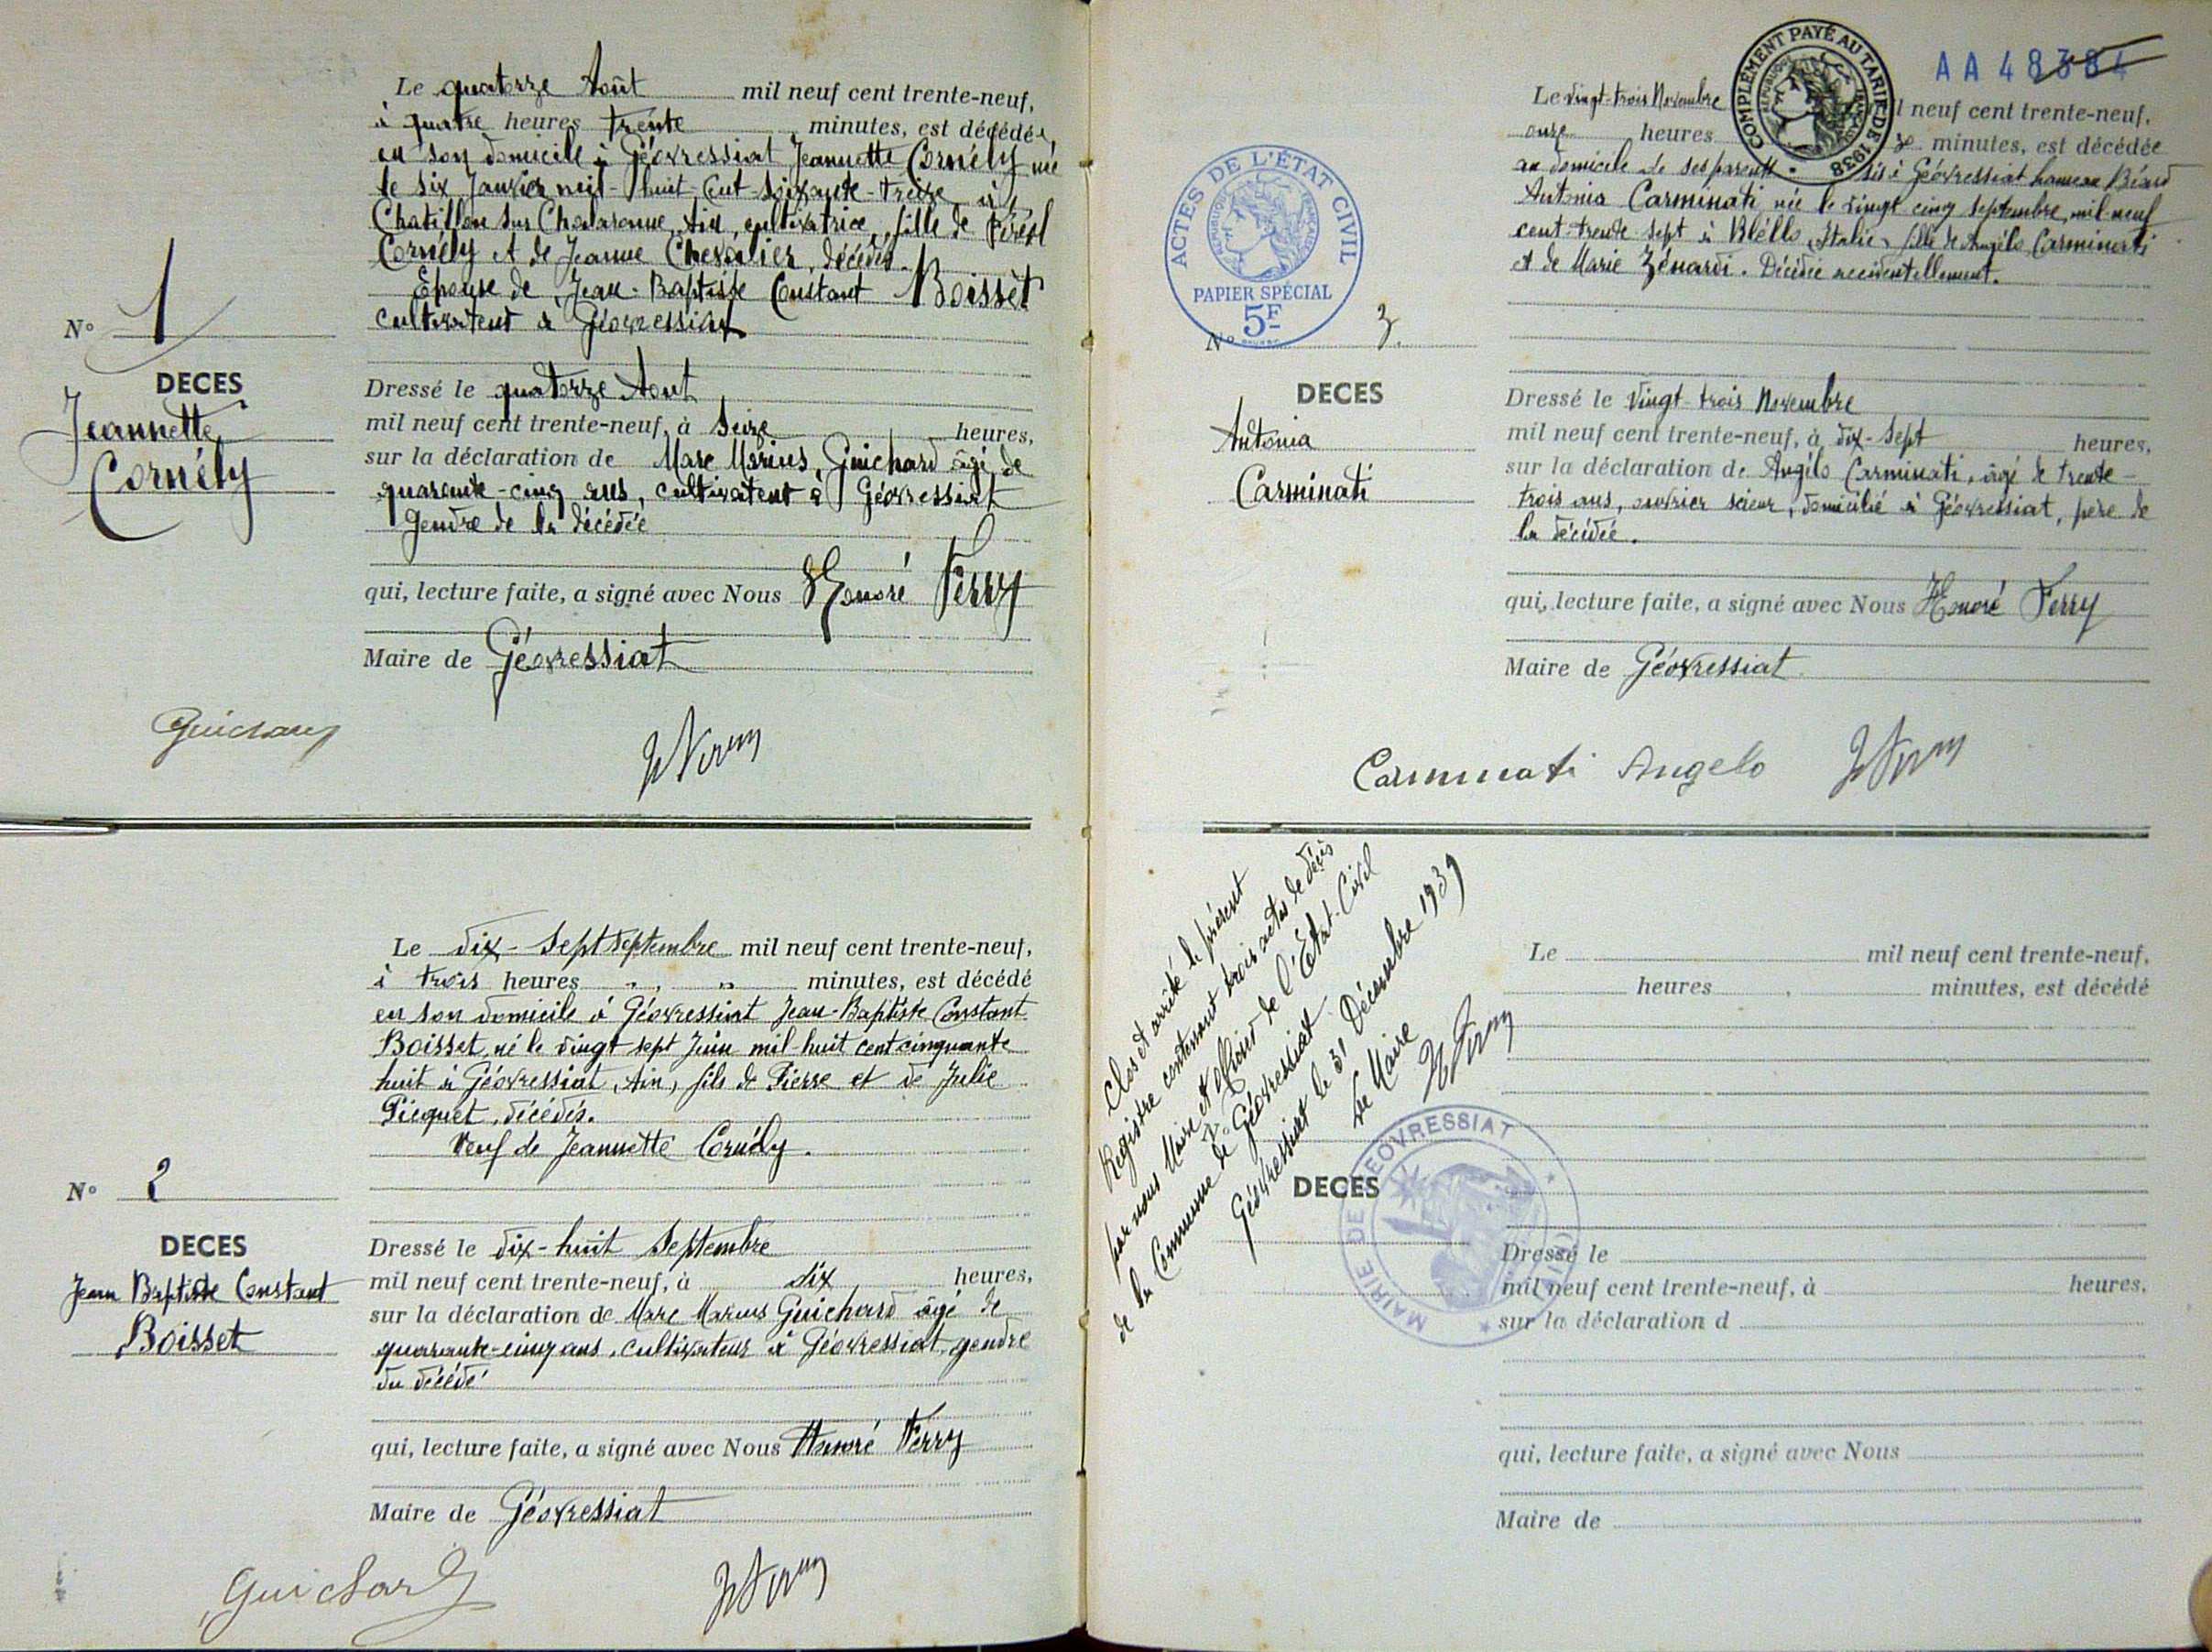 Le quatorze Août mil neuf cent trente-neuf,
à quatre heures trente minutes, est décédée
en son domicile à Géovressiat Jeannette Cornély née
le six Janvier mil-huit-Cent-Soixante-treize à
Chatillon sur Chalaronne, Ain, cultivatrice, fille de
Cornély et de Jeanne Chevalier, décédés.
Epouse de Jean-Baptiste Constant Boisset
cultivateur à Géovressiat
N° 1
DECES
Jeannette
Cornély
Dressé le quatorze Aout
mil neuf cent trente-neuf, à Seize heures,
sur la déclaration de Marc Marius Guichard âgé de
quarante-cinq ans, cultivateur à Géovressiat
gendre de la décédée
qui, lecture faite, a signé avec Nous Honoré Ferry
Maire de Géovressiat
Guichard
H Ferry
Le dix-Sept Septembre mil neuf cent trente-neuf,
à trois heures „ , „ minutes, est décédé
en son domicile à Géovressiat Jean-Baptiste Constant
Boisset, né le vingt sept Juin mil-huit cent cinquante
huit à Géovressiat, Ain, fils de Pierre et de Julie
Picquet, décédés.
Veuf de Jeannette Cornély.
N° 2
DECES
Jean Baptiste Constant
Boisset
Dressé le dix-huit Septembre
mil neuf cent trente-neuf, à dix heures,
sur la déclaration de Marc Marius Guichard âgé de
quarante-cinq ans, cultivateur à Géovressiat, gendre
du décédé
qui, lecture faite, a signé avec Nous Honoré Ferry
Maire de Géovressiat
Guichard
H Ferry
AA 48384
COMPLÉMENT PAYÉ AU TARIF DE 1938
RÉPUBLIQUE FRANÇAISE
Le vingt-trois Novembre l neuf cent trente-neuf,
onze heures minutes, est décédée
au domicile de ses parents sis à Géovressiat hameau Béard
Antonia Carminati née le vingt cinq septembre mil-neuf
cent-trente sept à Bléllo, Italie, fille de Angélo Carminati
et de Marie Zénardi. Décédée accidentellement.
ACTES DE L'ÉTAT CIVIL
RÉPUBLIQUE FRANÇAISE
PAPIER SPÉCIAL
5F
N° 3.
DECES
Antonia
Carminati
Dressé le Vingt-trois Novembre
mil neuf cent trente-neuf, à dix-Sept heures,
sur la déclaration de Angélo Carminati, âgé de trente-
trois ans, ouvrier scieur, domicilié à Géovressiat, père de
la décédée.
qui, lecture faite, a signé avec Nous Honoré Ferry
Maire de Géovressiat
Carminati Angelo
H Ferry
Clos et arrêté le présent
Registre contenant trois actes de décès
par nous Maire et officier de l'Etat-Civil
de la Commune de Géovressiat
Géovressiat le 31 Décembre 1939
Le Maire
H Ferry
MAIRIE DE GÉOVRESSIAT (AIN)
Le mil neuf cent trente-neuf,
heures , minutes, est décédé
DECES
Dressé le
mil neuf cent trente-neuf, à heures,
sur la déclaration d
qui, lecture faite, a signé avec Nous
Maire de